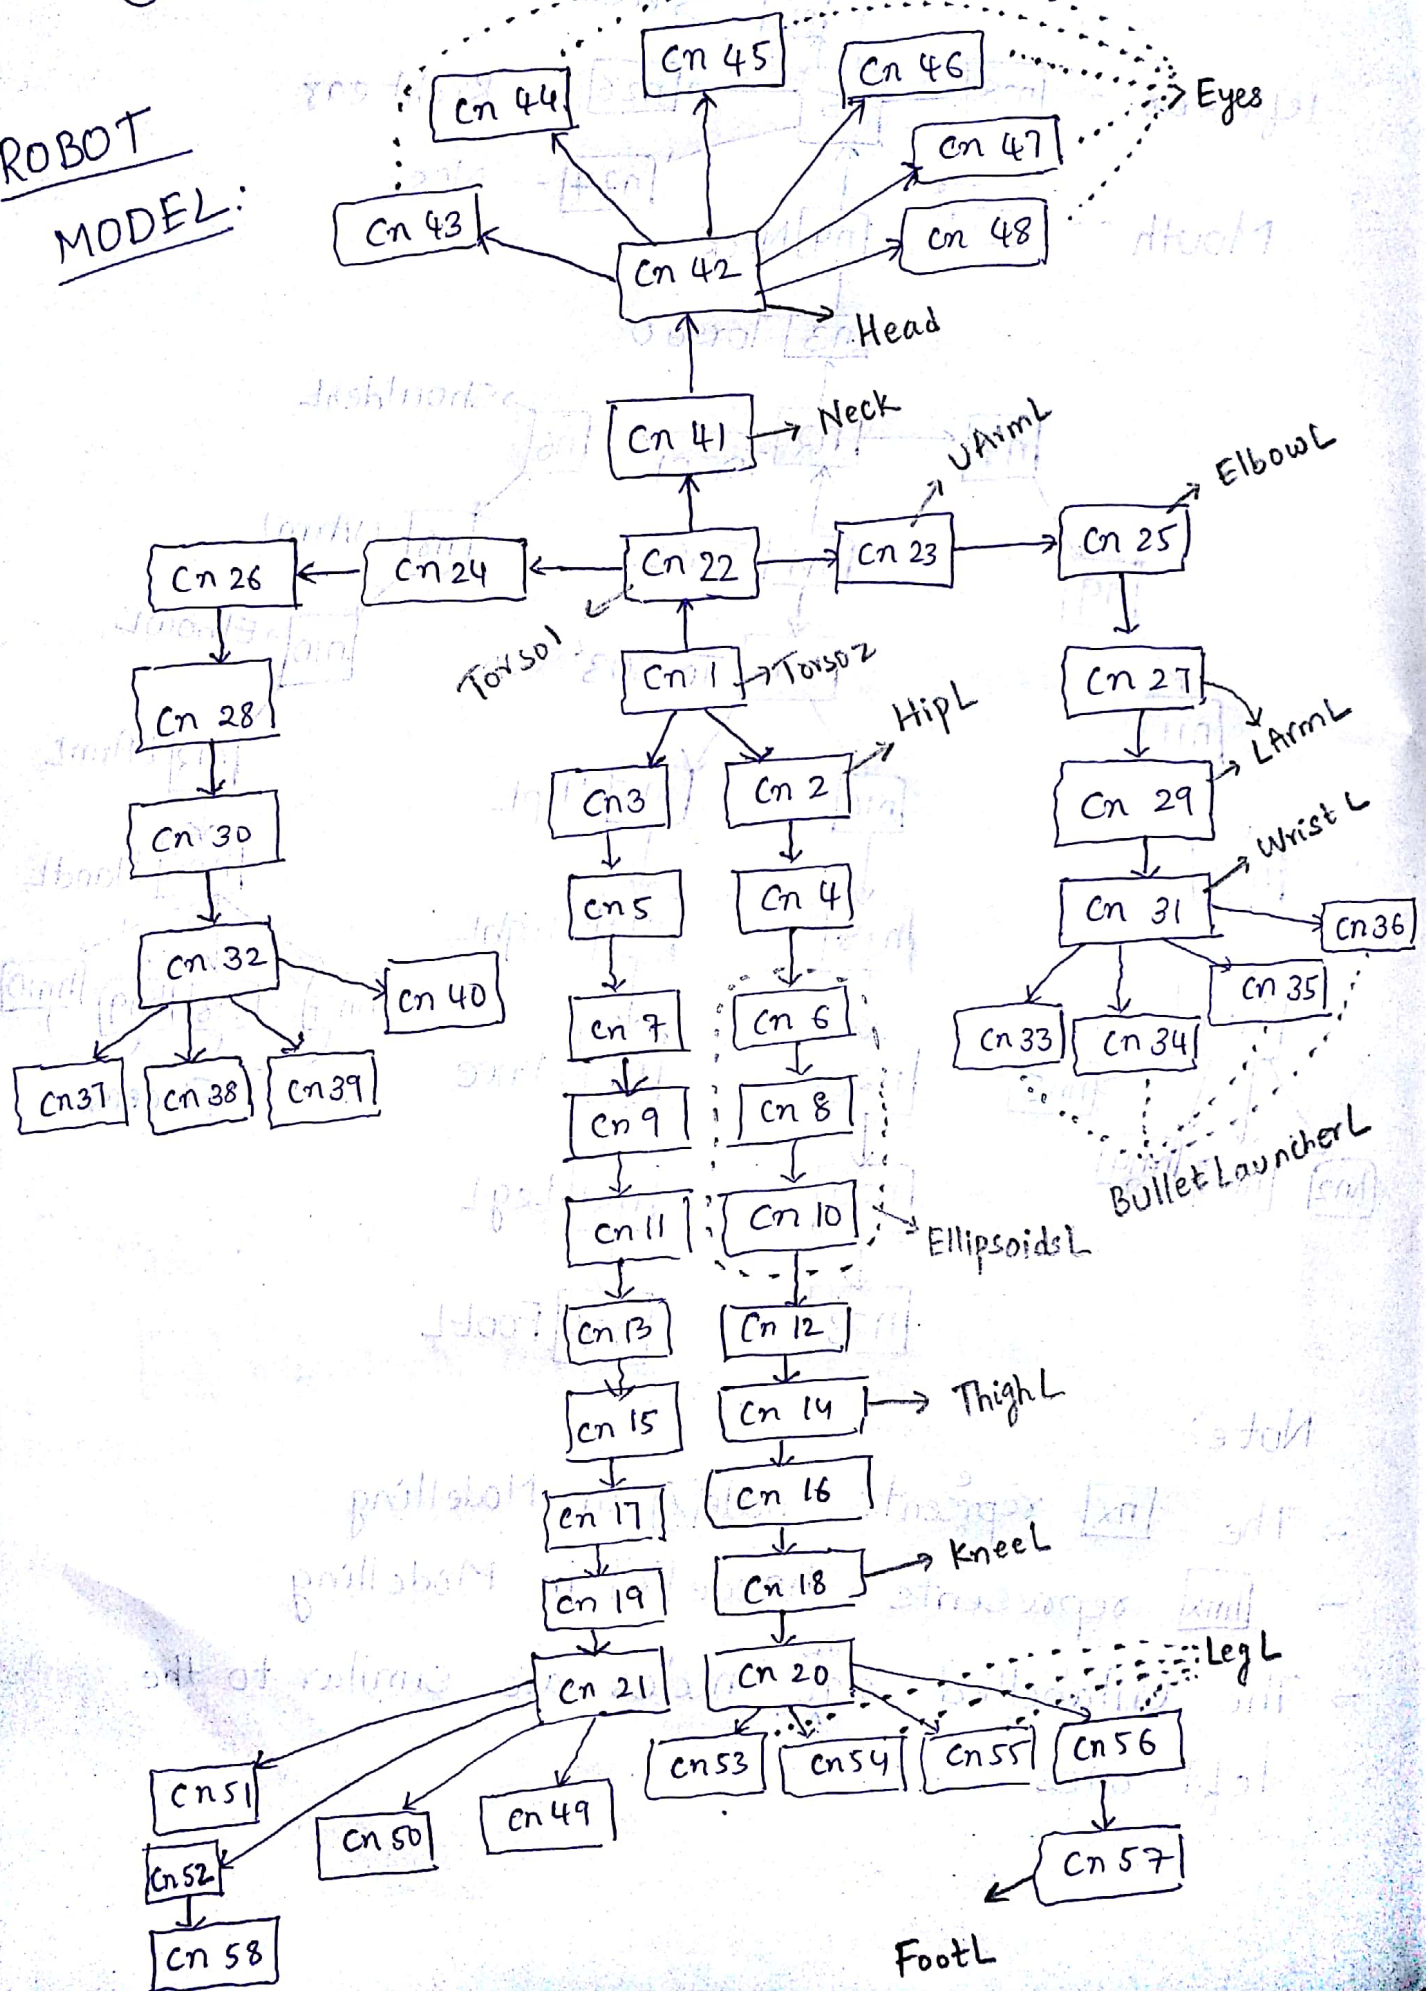 ROBOT
MODEL:
Cn 45
Cn 46
Cn 44
Eyes
Cn 47
Cn 43
Cn 48
Cn 42
Head
Cn 41
Neck
UArmL
ElbowL
Cn 26
Cn 24
Cn 22
Cn 23
Cn 25
Torso1
Cn 1
Torso2
Cn 27
Cn 28
HipL
LArmL
Cn3
Cn 2
Cn 29
Cn 30
Wrist L
Cn5
Cn 4
Cn 31
Cn36
Cn 32
Cn 40
Cn 35
Cn 7
Cn 6
Cn 33
Cn 34
Cn37
Cn 38
Cn39
Cn 9
Cn 8
Bullet LauncherL
Cn 11
Cn 10
EllipsoidsL
Cn 13
Cn 12
Cn 15
Cn 14
ThighL
Cn 17
Cn 16
KneeL
Cn 19
Cn 18
Cn 21
Cn 20
LegL
Cn53
Cn54
Cn55
Cn 56
Cn51
Cn 50
Cn 49
Cn52
Cn 57
Cn 58
FootL